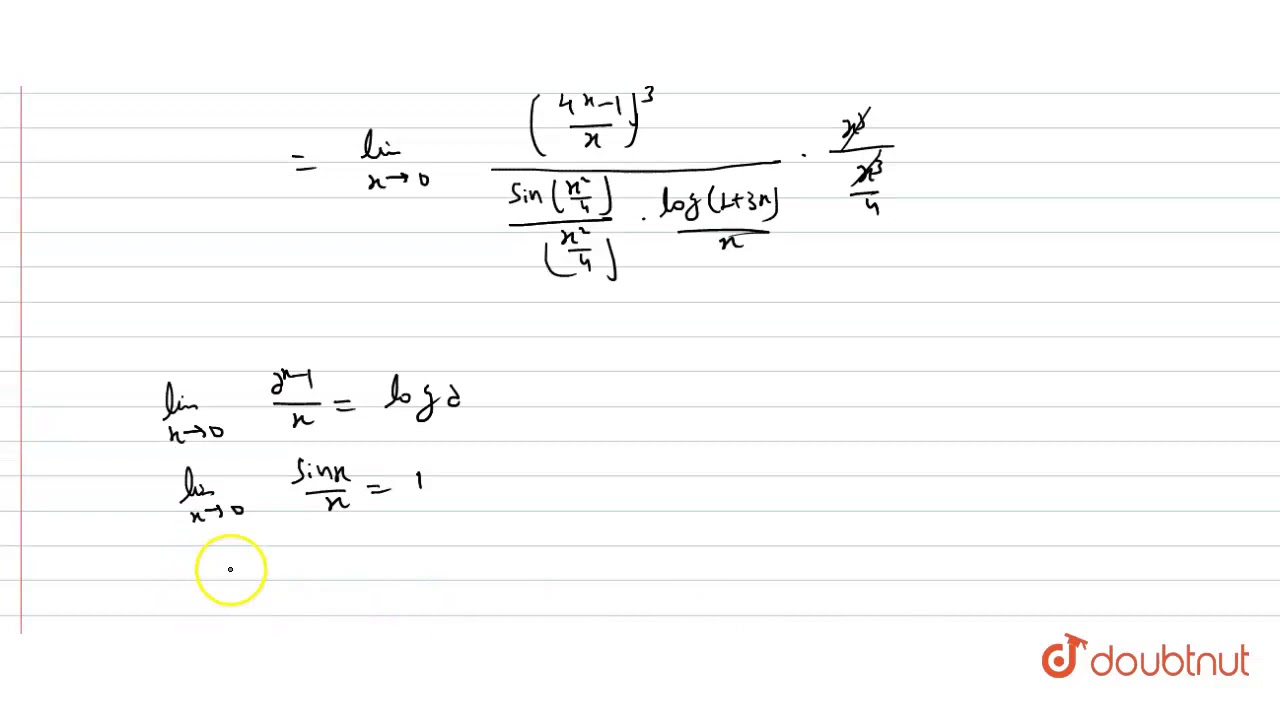 = lim x→0 ((4^x-1)/x)^3 / (sin(x²/4)/(x²/4) · log(1+3x)/x) · x³/(x³/4)
lim x→0 (a^x-1)/x = log a
lim x→0 sinx/x = 1
doubtnut